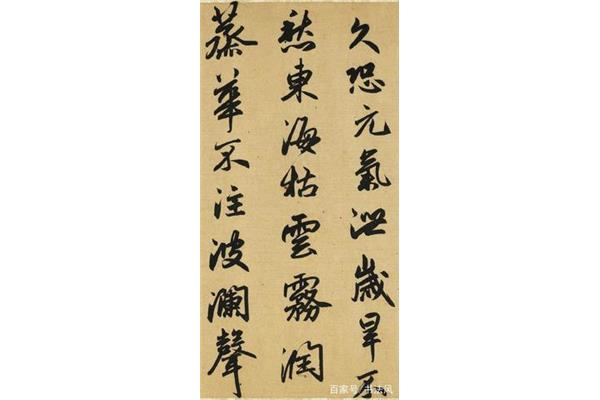 久恐元氣泄歲旱不
愁東海枯雲霧潤
蒸華不注波瀾聲
百家号/书法风